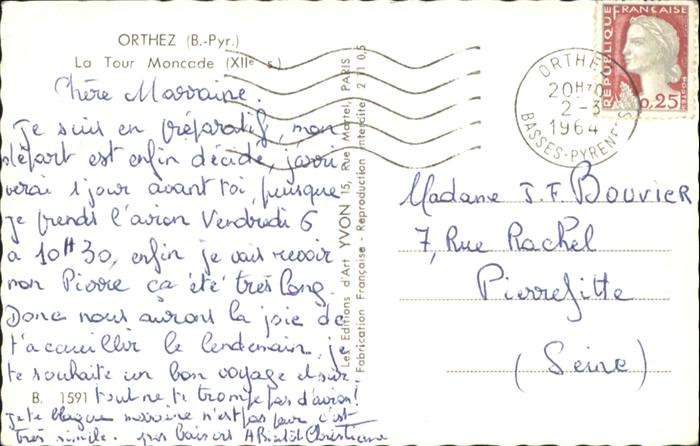 ORTHEZ (B.-Pyr.)
La Tour Moncade (XIIe s.)
Chère Marraine.
Je suis en préparatif, mon
départ est enfin décidé, j'arri
verai 1 jour avant toi, puisque
je prends l'avion Vendredi 6
à 10H30, enfin je vais revoir
mon Pierre ça été très long.
Donc nous aurons la joie de
t'accueillir le lendemain, je
te souhaite un bon voyage
tout ne te trompe pas d'avion!
je te blague marraine n'est pas peur c'est
très simple. gros baisers A Bientôt Christiane
B. 1591
Les Editions d'Art YVON 15, Rue Martel, PARIS
Fabrication Française - Reproduction interdite 2 105
ORTHEZ
20H30
2-3
1964
BASSES-PYRENEES
REPUBLIQUE FRANÇAISE
0,25
Madame J.F. BOUVIER
7, Rue Rachel
Pierrefitte
(Seine)